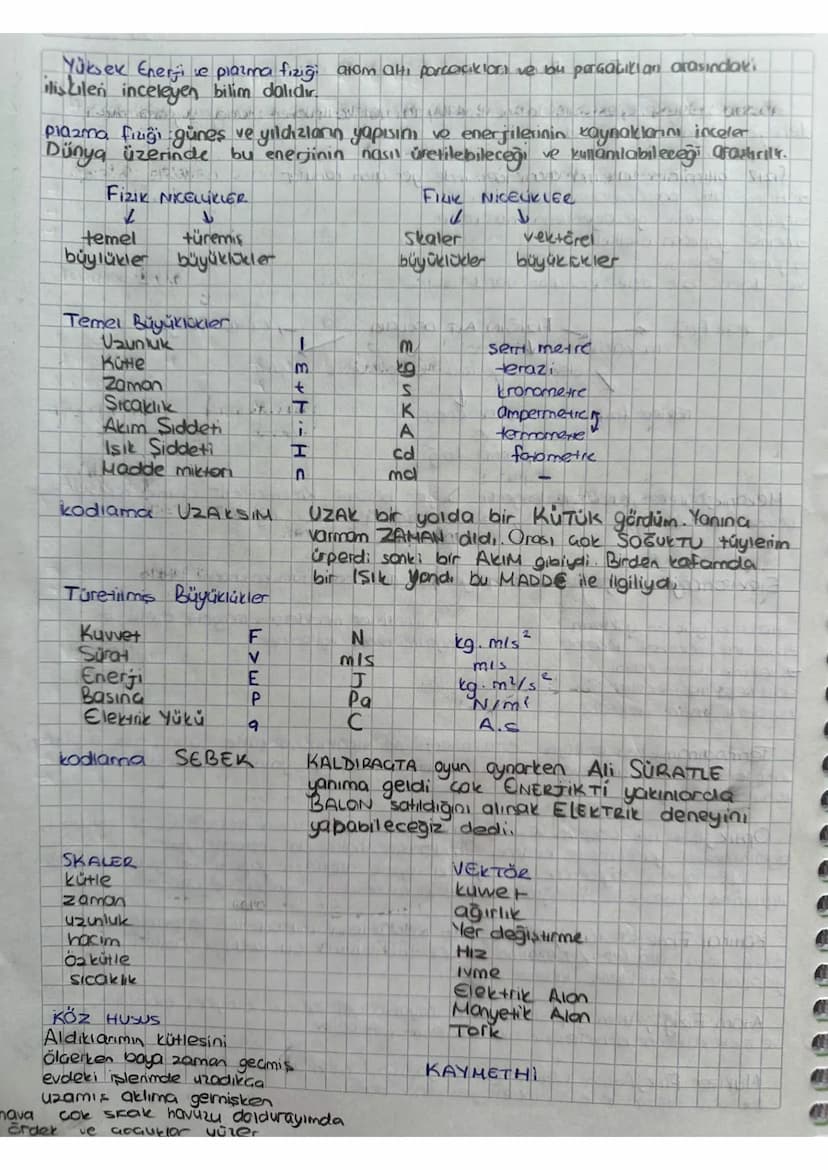 Yüksek Enerji ve plazma fiziği atom altı parçacıkları ve bu parçacıkları arasındaki
ilişkileri inceleyen bilim dalıdır.
Plazma fiziği : güneş ve yıldızların yapısını ve enerjilerinin kaynaklarını inceler
Dünya üzerinde bu enerjinin nasıl üretilebileceği ve kullanılabileceği araştırılır.
FİZİK NİCELİKLER FİZİK NİCELİKLER
temel türemiş skaler vektörel
büyüklükler büyüklükler büyüklükler büyüklükler
Temel Büyüklükler
Uzunluk l m şerit metre
Kütle m kg terazi
Zaman t s kronometre
Sıcaklık T K ampermetre
Akım Şiddeti i A termometre
Işık Şiddeti I cd fotometre
Madde miktarı n mol -
kodlama UZAKSIM UZAK bir yolda bir KÜTÜK gördüm. Yanına
varmam ZAMAN aldı. Orası çok SOĞUKTU tüylerim
ürperdi sanki bir AKIM gibiydi. Birden kafamda
bir IŞIK yandı bu MADDE ile ilgiliydi
Türetilmiş Büyüklükler
Kuvvet F N kg. m/s²
Sürat V m/s m/s
Enerji E J kg. m²/s²
Basınç P Pa N/m²
Elektrik Yükü q C A.s
kodlama SEBEK KALDIRAÇTA oyun oynarken Ali SÜRATLE
yanıma geldi çok ENERJİKTİ yakınlarda
BALON satıldığını alırsak ELEKTRİK deneyini
yapabileceğiz dedi.
SKALER VEKTÖR
kütle kuvvet
zaman ağırlık
uzunluk Yer değiştirme
hacim Hız
özkütle ivme
sıcaklık Elektrik Alan
Manyetik Alan
KÖZ HUSUS Tork
Aldıklarımın kütlesini
ölçerken baya zaman geçmiş KAYMETHİ
evdeki işlerimde uzadıkça
uzamış aklıma gelmişken
hava çok sıcak havuzu doldurayımda
ördek ve çocuklar yüzer